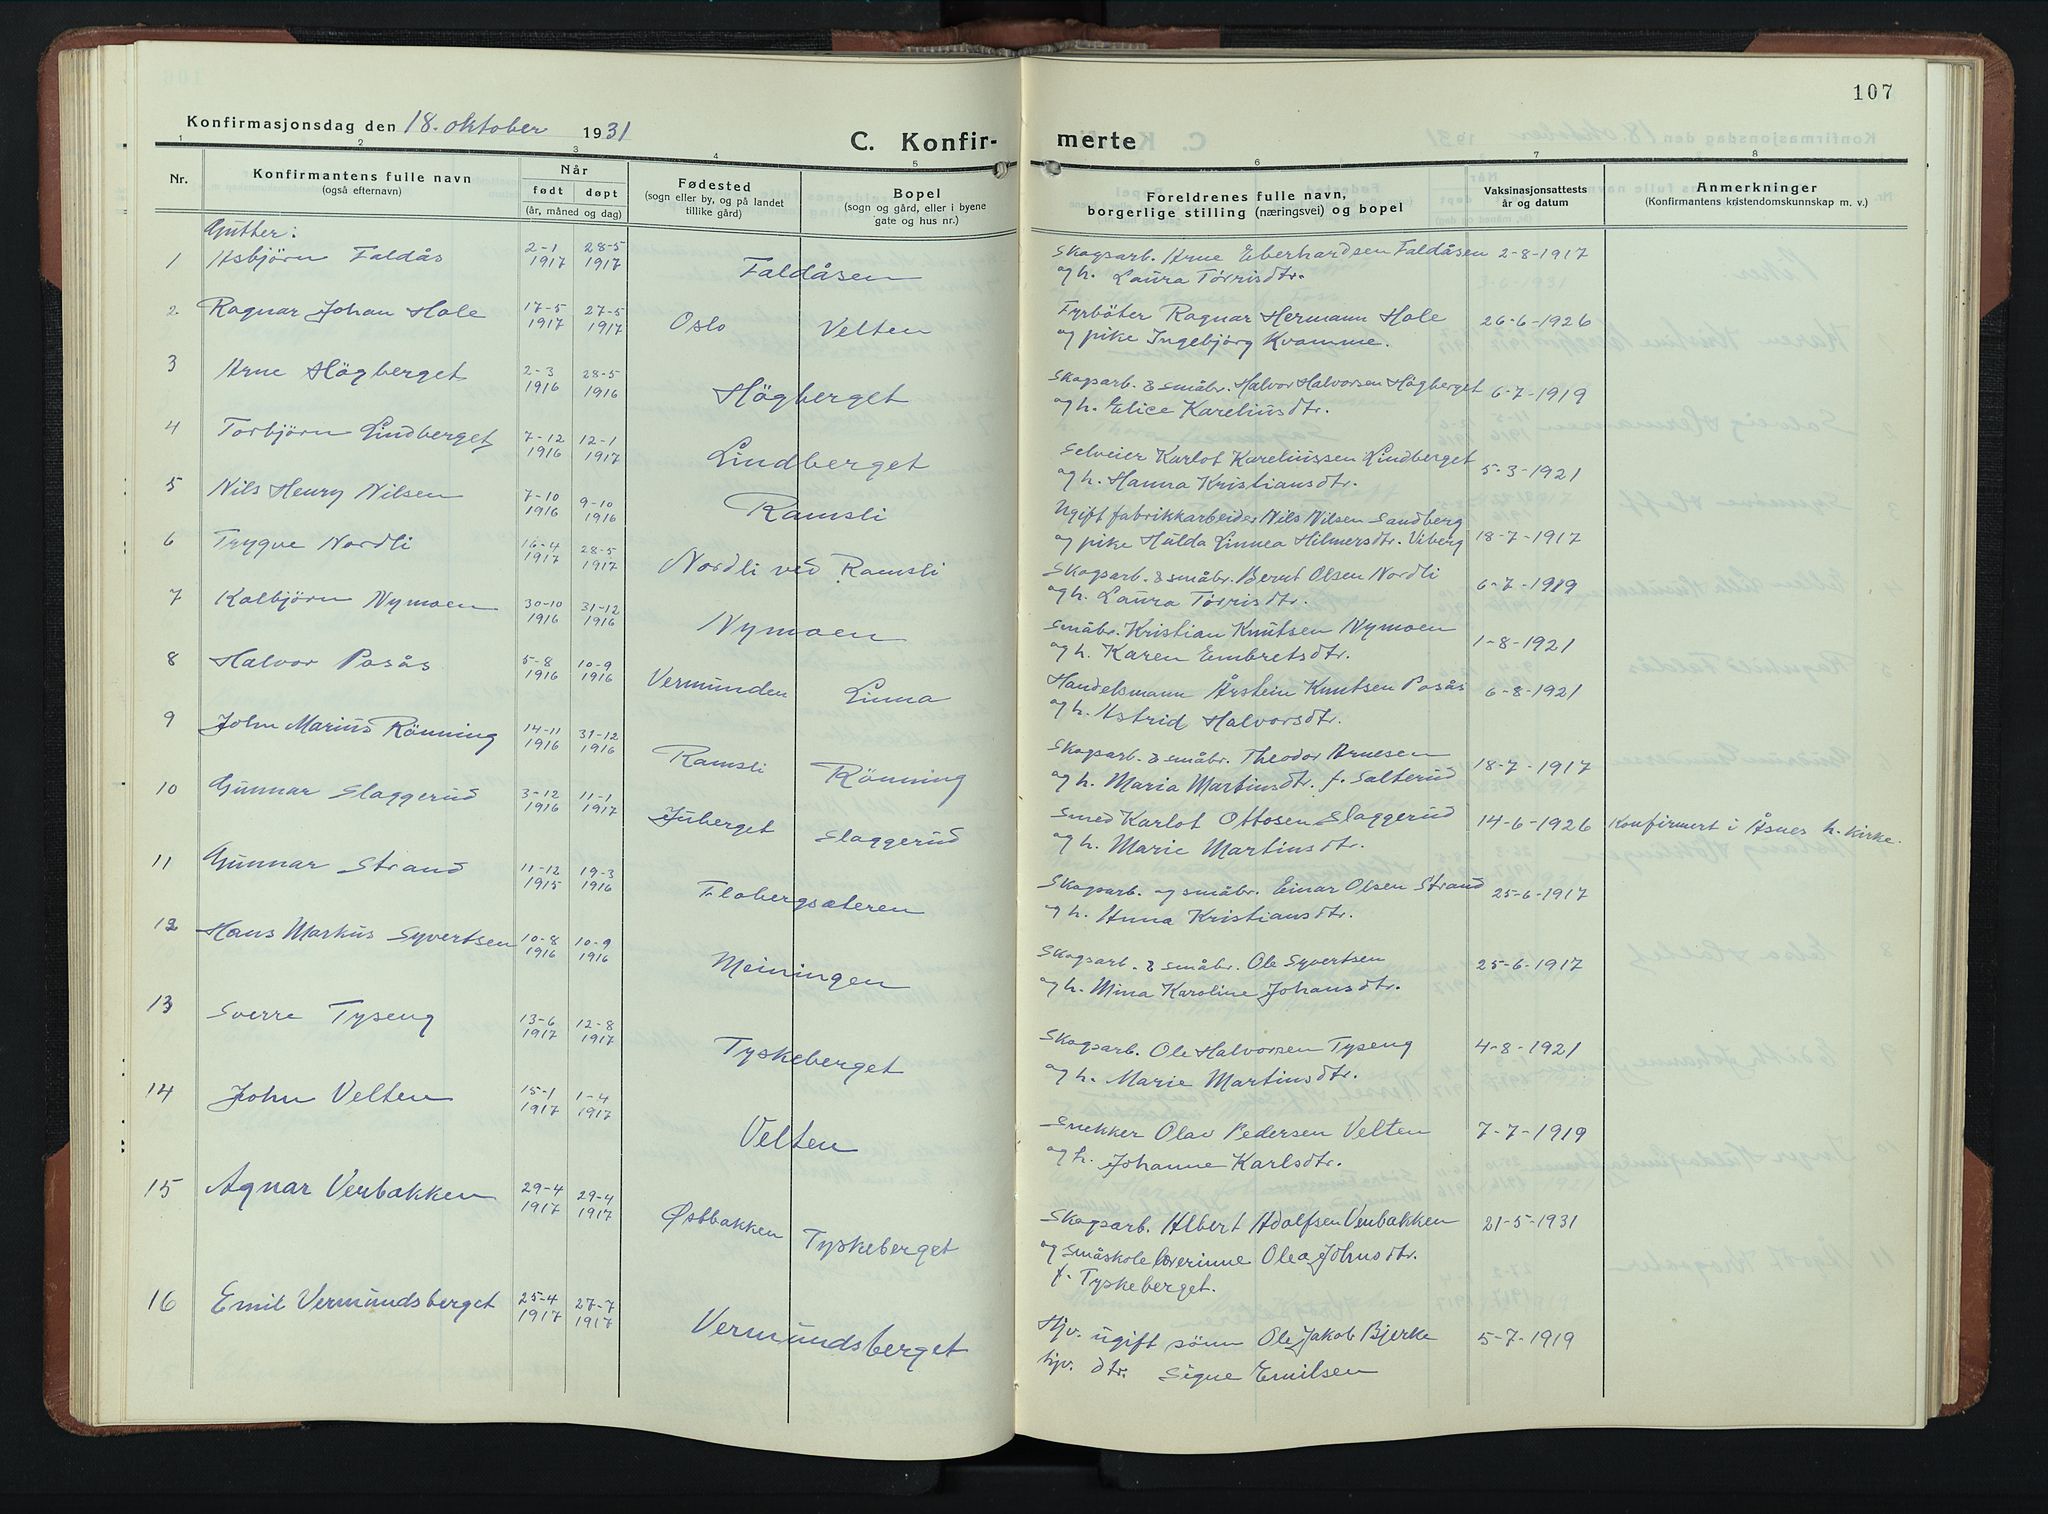 107
Konfirmasjonsdag den 18. oktober 1931
C. Konfir- merte
1 2 3 4 5 6 7 8
Nr.
Konfirmantens fulle navn
(også efternavn)
Når
født døpt
(år, måned og dag)
Fødested
(sogn eller by, og på landet
tillike gård)
Bopel
(sogn og gård, eller i byene
gate og hus nr.)
Foreldrenes fulle navn,
borgerlige stilling (næringsvei) og bopel
Vaksinasjonsattests
år og datum
Anmerkninger
(Konfirmantens kristendomskunnskap m. v.)
Gutter:
1 Asbjørn Faldås 2-1 1917 28-5 1917 Faldåsen
Skogsarb. Arne Eberhardsen Faldåsen 2-8-1917
og h. Laura Tørrisdtr.
2. Ragnar Johan Hole 17-5 1917 27-5 1917 Oslo Velten
Fyrbøter Ragnar Hermann Hole 26-6-1926
og pike Ingebjörg Kvamme.
3 Arne Högberget 2-3 1916 28-5 1916 Högberget
Skogsarb. & småbr. Halvor Halvorsen Högberget 6-7-1919
og h. Elice Kareliusdtr.
4 Torbjörn Lindberget 7-12 1916 12-1 1917 Lindberget
Selveier Karlot Kareliussen Lindberget 5-3-1921
og h. Hanna Kristiansdtr.
5 Nils Henry Nilsen 7-10 1916 9-10 1916 Ramsli
Ugift fabrikkarbeider Nils Nilsen Sandberg
og pike Hulda Linnea Hilmersdtr. Viberg 18-7-1917
6 Trygve Nordli 16-4 1917 28-5 1917 Nordli ved Ramsli
Skogsarb. & småbr. Bernt Olsen Nordli 6-7-1919
og h. Laura Tørrisdtr.
7 Kolbjörn Nymoen 30-10 1916 31-12 1916 Nymoen
Småbr. Kristian Knutsen Nymoen 1-8-1921
og h. Karen Embretsdtr.
8 Halvor Posås 5-8 1916 10-9 1916 Vermunden Linna
Handelsmann Årstein Knutsen Posås 6-8-1921
og h. Astrid Halvorsdtr.
9 John Marius Rönning 14-11 1916 31-12 1916 Ramsli Rönning
Skogsarb. & småbr. Theodor Arnesen 18-7-1917
og h. Maria Martinsdtr. f. Salterud
10 Gunnar Slaggerud 3-12 1916 11-1 1917 Juberget Slaggerud
Smed Karlot Ottosen Slaggerud 14-6-1926 Konfirmert i Åsnes h. kirke.
og h. Marie Martinsdtr.
11 Gunnar Strand 11-12 1915 19-3 1916 Flobergsæteren
Skogsarb. og småbr. Einar Olsen Strand 25-6-1917
og h. Anna Kristiansdtr.
12 Hans Markus Syvertsen 10-8 1916 10-9 1916 Meiningen
Skogsarb. & småbr. Ole Syvertsen 25-6-1917
og h. Mina Karoline Johansdtr.
13 Sverre Tyseng 13-6 1917 12-8 1917 Tyskeberget
Skogsarb. Ole Halvorsen Tyseng 4-8-1921
og h. Marie Martinsdtr.
14 John Velten 15-1 1917 1-4 1917 Velten
Snekker Olav Pedersen Velten 7-7-1919
og h. Johanne Karlsdtr.
15 Agnar Verbakken 29-4 1917 29-4 1917 Østbakken Tyskeberget
Skogsarb. Albert Adolfsen Verbakken 21-5-1931
og småskolelærerinne Olea Johnsdtr.
f. Tyskeberget.
16 Emil Vermundsberget 25-4 1917 27-7 1917 Vermundsberget
Hjv. ugift sönn Ole Jakob Bjerke 5-7-1919
hjv. dtr. Signe Emilsen